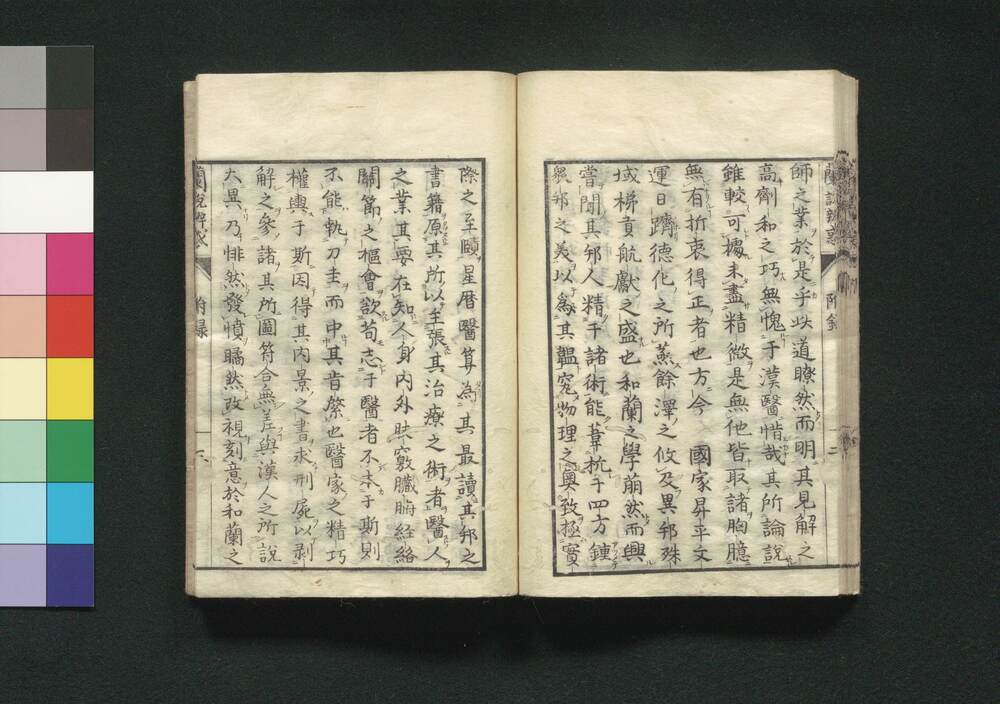 蘭説辨惑
附録
二
師之業於是乎此道瞭然而明其見解之
高劑和之巧無愧于漢醫惜哉其所論説
雖較可據未盡精微是無他皆取諸胸臆
無有折衷得正者也方今 國家昇平文
運日躋德化之所蒸餘澤之攸及異邦殊
域梯貢航獻之盛也和蘭之學蔚然而興
嘗聞其邦人精于諸術能葦杭于四方鍾
衆邦之美以爲其韞究物理之奧致極實
際之至賾星曆醫算為其最讀其邦之
書籍原其所以主張其治療之術者醫人
之業其要在知人身内外脉竅臟腑経絡
關節之樞會欤苟志于醫者不本于斯則
不能執刀圭而中其肯綮也醫家之精巧
權輿于斯因得其内景之書求刑屍以剥
解之參諸其所圖符合無差與漢人之所説
大異乃悱然發憤矚然改視刻意於和蘭之
蘭説辨惑
附録